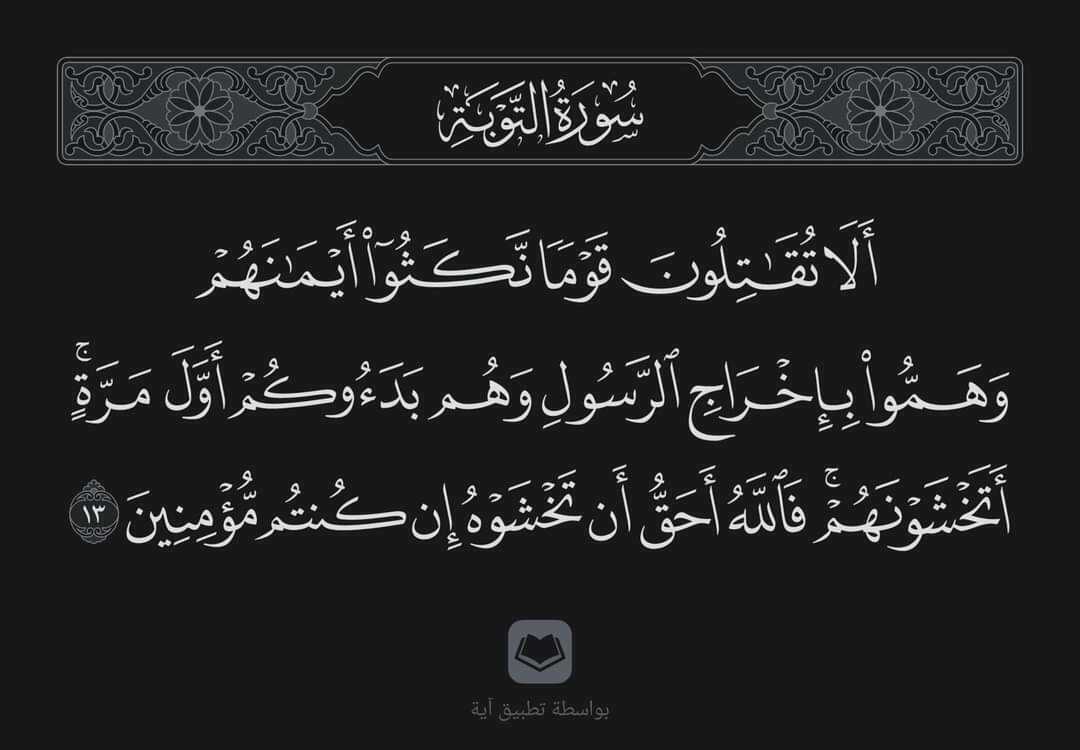 سُورَةُ التَّوۡبَةِ
أَلَا تُقَٰتِلُونَ قَوۡمٗا نَّكَثُوٓاْ أَيۡمَٰنَهُمۡ
وَهَمُّواْ بِإِخۡرَاجِ ٱلرَّسُولِ وَهُم بَدَءُوكُمۡ أَوَّلَ مَرَّةٍۚ
أَتَخۡشَوۡنَهُمۡۚ فَٱللَّهُ أَحَقُّ أَن تَخۡشَوۡهُ إِن كُنتُم مُّؤۡمِنِينَ ١٣
بواسطة تطبيق آية